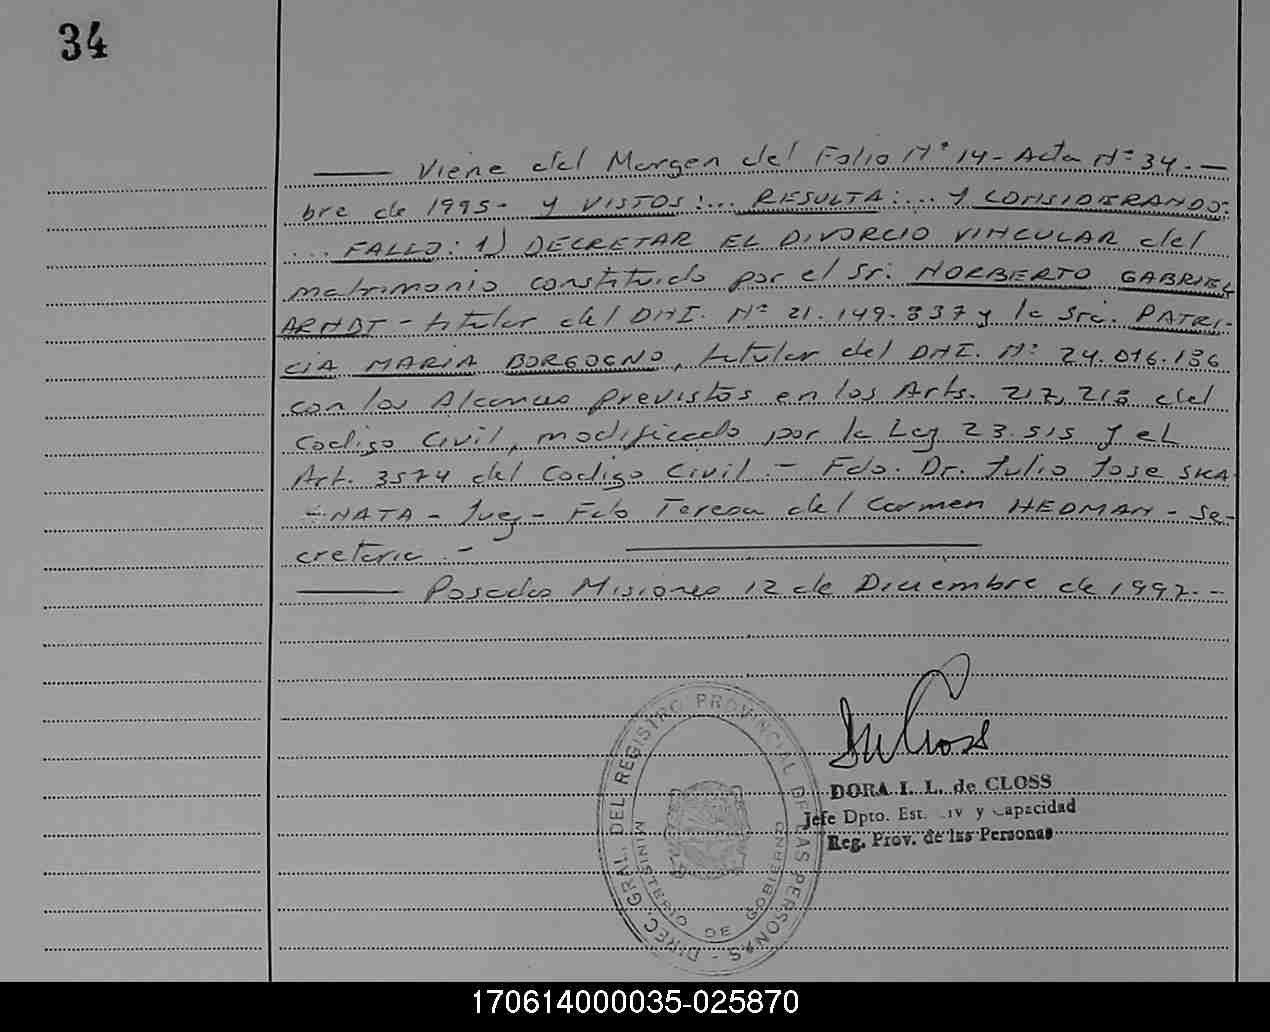 34
Viene del Margen del Folio Nº 14 - Acta Nº 34. -
bre de 1995 - Y VISTOS:... RESULTA:... Y CONSIDERANDO:
... FALLO: 1) DECRETAR EL DIVORCIO VINCULAR del
matrimonio constituido por el Sr. NORBERTO GABRIEL
ARNDT - titular del DNI. Nº 21.149.337 y la Sra. PATRI-
CIA MARIA BORGOGNO, titular del DNI. Nº 24.016.136
con los Alcances previstos en los Arts. 217, 218 del
Codigo Civil, modificado por la Ley 23.515 y el
Art. 3574 del Codigo Civil. - Fdo. Dr. Julio Jose SKA-
-NATA - Juez - Fdo Teresa del Carmen HEDMAN - Se-
cretaria. -
Posadas Misiones 12 de Diciembre de 1997. -
DIREC. GRAL. DEL REGISTRO PROVINCIAL DE LAS PERSONAS -
MINISTERIO DE GOBIERNO
DORA I. L. de CLOSS
Jefe Dpto. Est. Civ y Capacidad
Reg. Prov. de las Personas
170614000035-025870